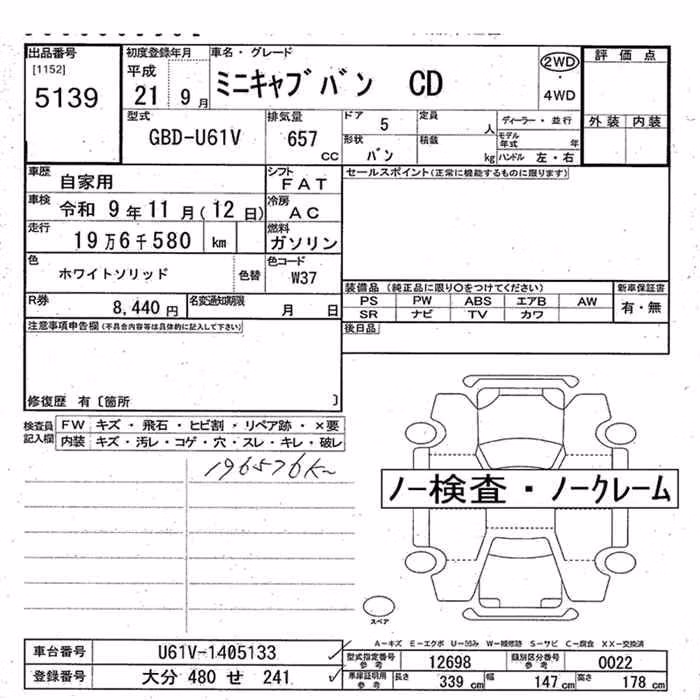 出品番号
[1152]
5139
初度登録年月
平成
21 9月
車名・グレード
ミニキャブバン CD
2WD
・
4WD
評価点
外装 内装
型式
GBD-U61V
排気量
657
cc
ドア 5
形状 バン
定員 人
積載 kg
ディーラー・並行
モデル年式 年
ハンドル 左・右
車歴 自家用
シフト FAT
車検 令和 9年11月(12日)
冷房 AC
走行 19万6千580 km
燃料 ガソリン
色 ホワイトソリッド 色替
色コード W37
R券 8,440円
名変通知期限 月 日
セールスポイント(正常に機能するものに限ります)
装備品 (純正品に限り○をつけてください)
新車保証書
PS PW ABS エアB AW
SR ナビ TV カワ
有・無
後日品
注意事項申告欄(不具合内容等は具体的に記入して下さい)
修復歴 有〔箇所 〕
検査員記入欄
FW キズ・飛石・ヒビ割・リペア跡・×要
内装 キズ・汚レ・コゲ・穴・スレ・キレ・破レ
196576K
ノー検査・ノークレーム
スペア
A-キズ E-エクボ U-凹み W-補修跡 S-サビ C-腐食 XX-交換済
車台番号 U61V-1405133
登録番号 大分 480 せ 241
型式指定番号 参考 12698
類別区分番号 参考 0022
車庫証明用 参考 長さ 339 cm 幅 147 cm 高さ 178 cm